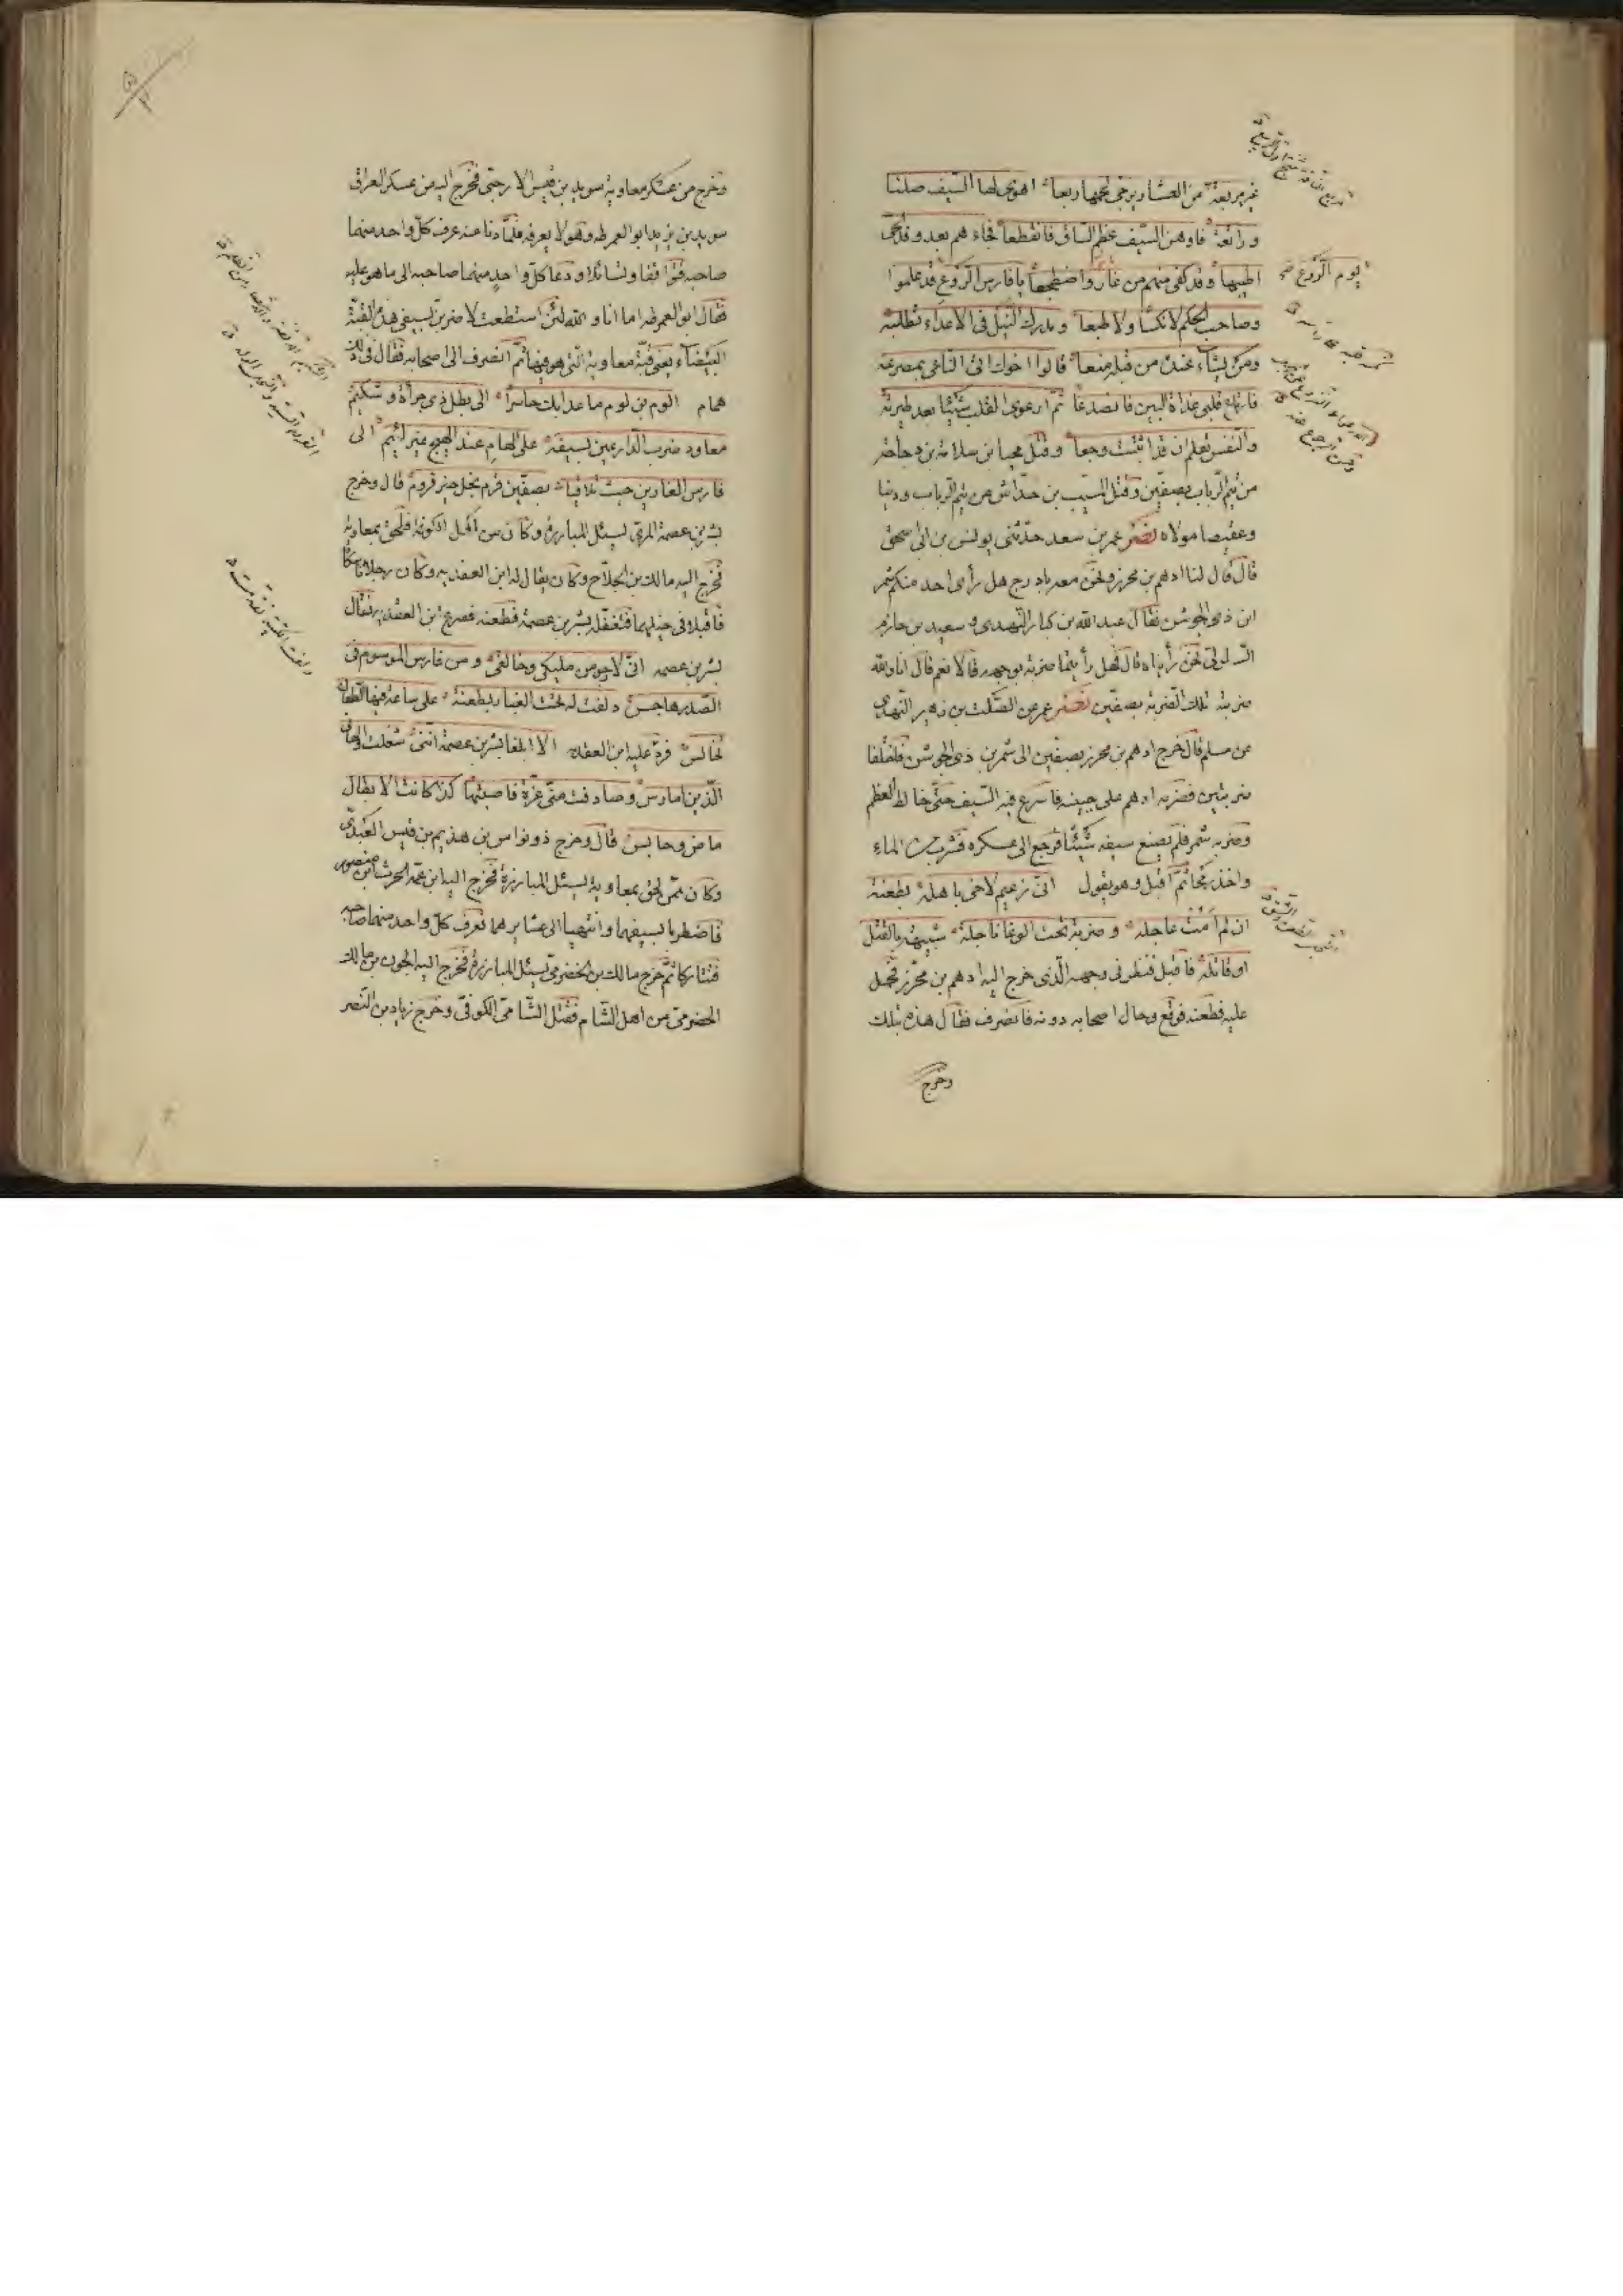 غير مربعة من العشار يزجى لحمها ربعا اهوى لها السيف صلتا
ورائعة فاوهن السيف عظم الساق فانقطعا فجاءهم بعد وقد احمى
اطيبها وقد كفى منهم من غاب واضطجعا يا فارس الروع قد علموا
وصاحب الحكم لا نكسا ولا طبعا ومدرك النيل فى الاعداء تطلبه
ومن يشاء عندك من قبله منعا قالوا اخوك اتى الناعى بمصرعه
فارتاع قلبى غداة البين فانصدعا ثم ارعوى القلب شيئا بعد طيرته
والنفس تعلم ان قد اثبتت وجعا وقتل محيا بن سلامة بن دجاجة
من تيم الرباب بصفين وقتل المسيب بن خداش من تيم الرباب ودينا
وعقيصا مولاه نصر عمر بن سعد حدثنى يونس بن ابى اسحق
قال قال لنا ادهم بن محرز ونحن معه باذرح هل رأى احد منكم شمر
ابن ذى الجوشن فقال عبد الله بن كبار النهدى وسعيد بن حازم
السلولى نحن رأيناه قال فهل رأيتما ضربة بوجهه قالا نعم قال انا والله
ضربته تلك الضربة بصفين نصر عمر عن الصلت بن زهير النهدى
عن مسلم قال خرج ادهم بن محرز بصفين الى شمر بن ذى الجوشن فاختلفا
ضربتين فضربه ادهم على جبينه فاسرع فيه السيف حتى خالط العظم
وضربه شمر فلم يصنع سيفه شيئا فرجع الى عسكره فشرب من الماء
واخذ رمحا ثم اقبل وهو يقول انى زعيم لاخى باهلة بطعنة
ان لم امت عاجلة وضربة تحت الوغا فاجلة شبيهة بالقتل
او قاتلة فاقبل فنظر فى وجهه الذى خرج اليه ادهم بن محرز فحمل
عليه فطعنه فوقع وحال اصحابه دونه فانصرف فقال هذه بتلك
وخرج
يوم الروع
وخرج من عسكر معاوية سويد بن قيس الارحبى فخرج اليه من عسكر العراق
سويد بن يزيد ابو العمرطه وهو لا يعرفه فلما دنا منه عرف كل واحد منهما
صاحبه فتواقفا وتسائلا ودعا كل واحد منهما صاحبه الى ما هو عليه
فقال ابو العمرطه اما انا والله لئن استطعت لاضربن بسيفى هذه القبة
البيضاء يعنى قبة معاوية التى هو فيها ثم انصرف الى اصحابه فقال فى ذلك
همام الوم بن لوم ما عدا بك حاسرا الى بطل ذى جرأة وشكيم
معاود ضرب الدارعين بسيفه على الهام عند الهيج غير لئيم الى
فارس الغاوين حيث تلاقيا بصفين قرم نجل خير قروم قال وخرج
بشر بن عصمة المرى ليسئل المبارزة وكان من اهل الكوفة فلحق بمعاوية
فخرج اليه مالك بن الجلاح وكان يقال له ابن العقدية وكان رجلا ناسكا
فاقبلا فى خيلهما فتغفله بشر بن عصمة فطعنه فصرع ابن العقدية فقال
بشر بن عصمه انى لارجو من مليكى وخالقى ومن فارس الموسوم فى
الصدر هاجس دلفت له تحت الغبار بطعنة على ساعة فيها الطعان
تخالس فرد عليه ابن العقديه الا ابلغا بشر بن عصمة اننى شغلت والهانى
الذين امارس وصادفت منى غرة فاصبتها كذا كانت الابطال
ماض وحابس قال وخرج ذو نواس بن هذيم بن قيس العبدى
وكان ممن لحق بمعاوية ليسئل المبارزة فخرج اليه ابن عمه الحرث ابن منصور
فاضطربا بسيفهما وانتهيا الى عشايرهما فعرف كل واحد منهما صاحبه
فتتاركا ثم خرج مالك بن الحضرمى يسئل المبارزة فخرج اليه الجون بن مالك
الحضرمى من اهل الشام فقتل الشامى الكوفى وخرج زياد بن النضر